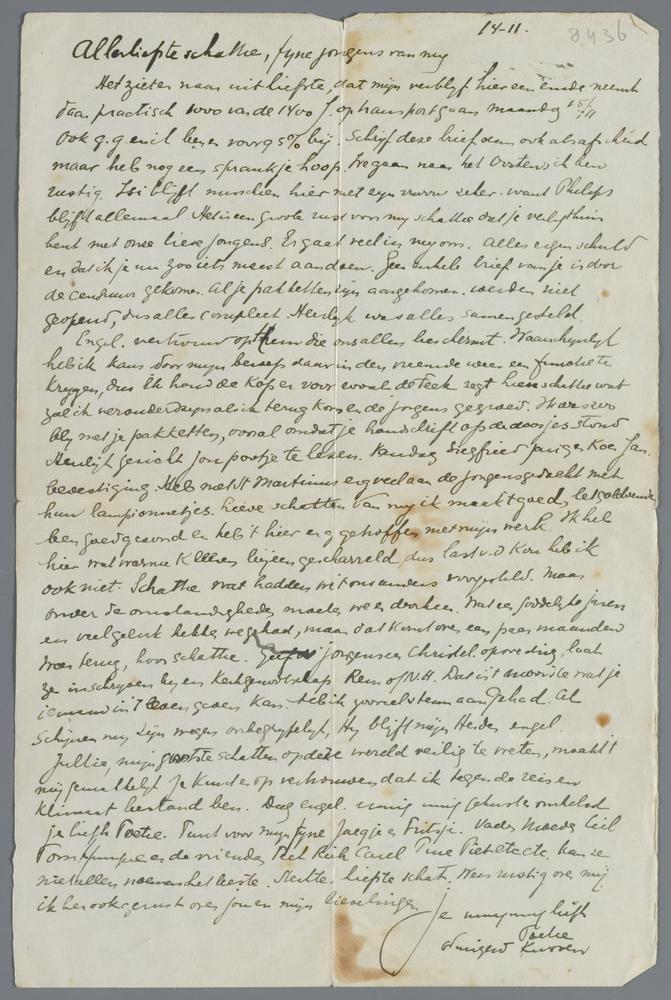 14-11.
8436
Allerliefste schattie, fyne jongens van my
Het ziet er naar uit liefste, dat mijn verblyf hier een einde neemt
daar practisch 1000 van de 1400 J. op transport gaan maandag 15/11
Ook g.g. en ik ben er voor 95% bij. Schryf deze brief dan ook als afscheid
maar heb nog een sprankje hoop. We gaan naar het Oosten, ik ben
rustig. blijft misschien hier met zijn vrouw zeker. want Philips
blijft allemaal. Het is een groote rust voor my schattie dat je veilig thuis
bent met onze lieve jongens. Er gaat veel in my om. Alles eigen schuld
en dat ik je nu zoo iets moest aandoen. Geen enkele brief van je is door
de censuur gekomen. Al je pakketten zijn aangekomen. werden niet
geopend, dus alles compleet. Heerlyk was alles samengesteld.
Engel. vertrouw op Hem die ons allen beschermt. Waarschynlyk
heb ik kans door mijn beroep daar in den vreemde weer een functie te
krygen, dus ik houd de kop er voor zegt hier schattie wat
zal ik veranderd zijn als ik terug kom en de jongens gegroeid. Was zoo
bly met je pakketten, vooral omdat je handschrift op de doosjes stond
Heerlyk gezicht jou pootje te lezen. Vandaag Siegfried jarig
bevestiging. Heb met St Martinus erg veel aan de jongens gedacht met
hun lampionnetjes. Lieve schatten van my ik maak t goed,
ben goed gezond en heb t hier erg getroffen met mijn werk. Ik heb
hier wat warme kleeren byeengescharreld dus last v.d. kou heb ik
ook niet. Schattie wat hadden wy t ons anders voorgesteld. Maar
onder de omstandigheden moeten we er doorheen. Wat een goddelyke jaren
en veel geluk hebben we gehad, maar dat komt over een paar maanden
weer terug, hoor schattie. Geef de jongens een Christel. opvoeding, laat
ze inschryven by een Kerkgenootschap Rem of N.H. Dat is t mooiste wat je
iemand in t leven geven kan. Heb ik zooveel steun aan gehad. Al
schijnen my zijn wegen onbegrypelyk, Hy blyft mijn Herder engel.
Jullie, mijn grootste schatten op deze wereld veilig te weten, maakt t
my gemakkelyk. Je kunt er op vertrouwen dat ik tegen de reis en
klimaat bestand ben. Dag engel. innig innig gekust en omhelsd
je liefh Toetie. Tuut voor mijn fyne Jaapje en Fritsje. Vader Moeder Ceel
Tom en de vrienden Piet Riek Carel Tine Piet etc etc. kan ze
niet allen noemen het beste. Sterkte. liefste schat. Wees rustig over my
ik ben ook gerust over jou en mijn lievelingen
Je innig innig liefh
Toetie
Duizend kussen